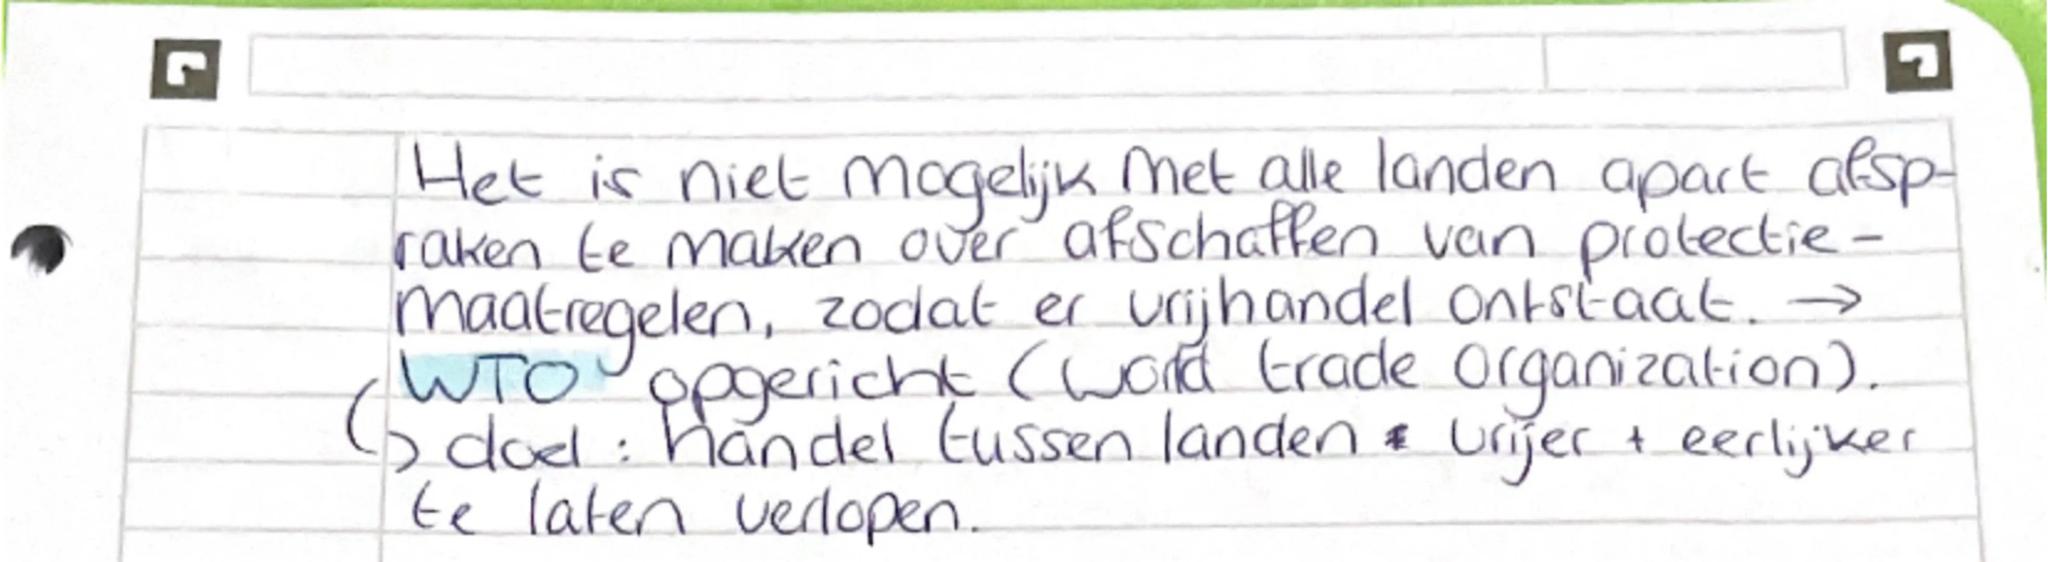 Het is niet mogelijk met alle landen apart afsp-
raken te maken over afschaffen van protectie-
maatregelen, zodat er vrijhandel ontstaat. →
WTO opgericht (World trade organization).
↳ doel : handel tussen landen vrijer + eerlijker
te laten verlopen.